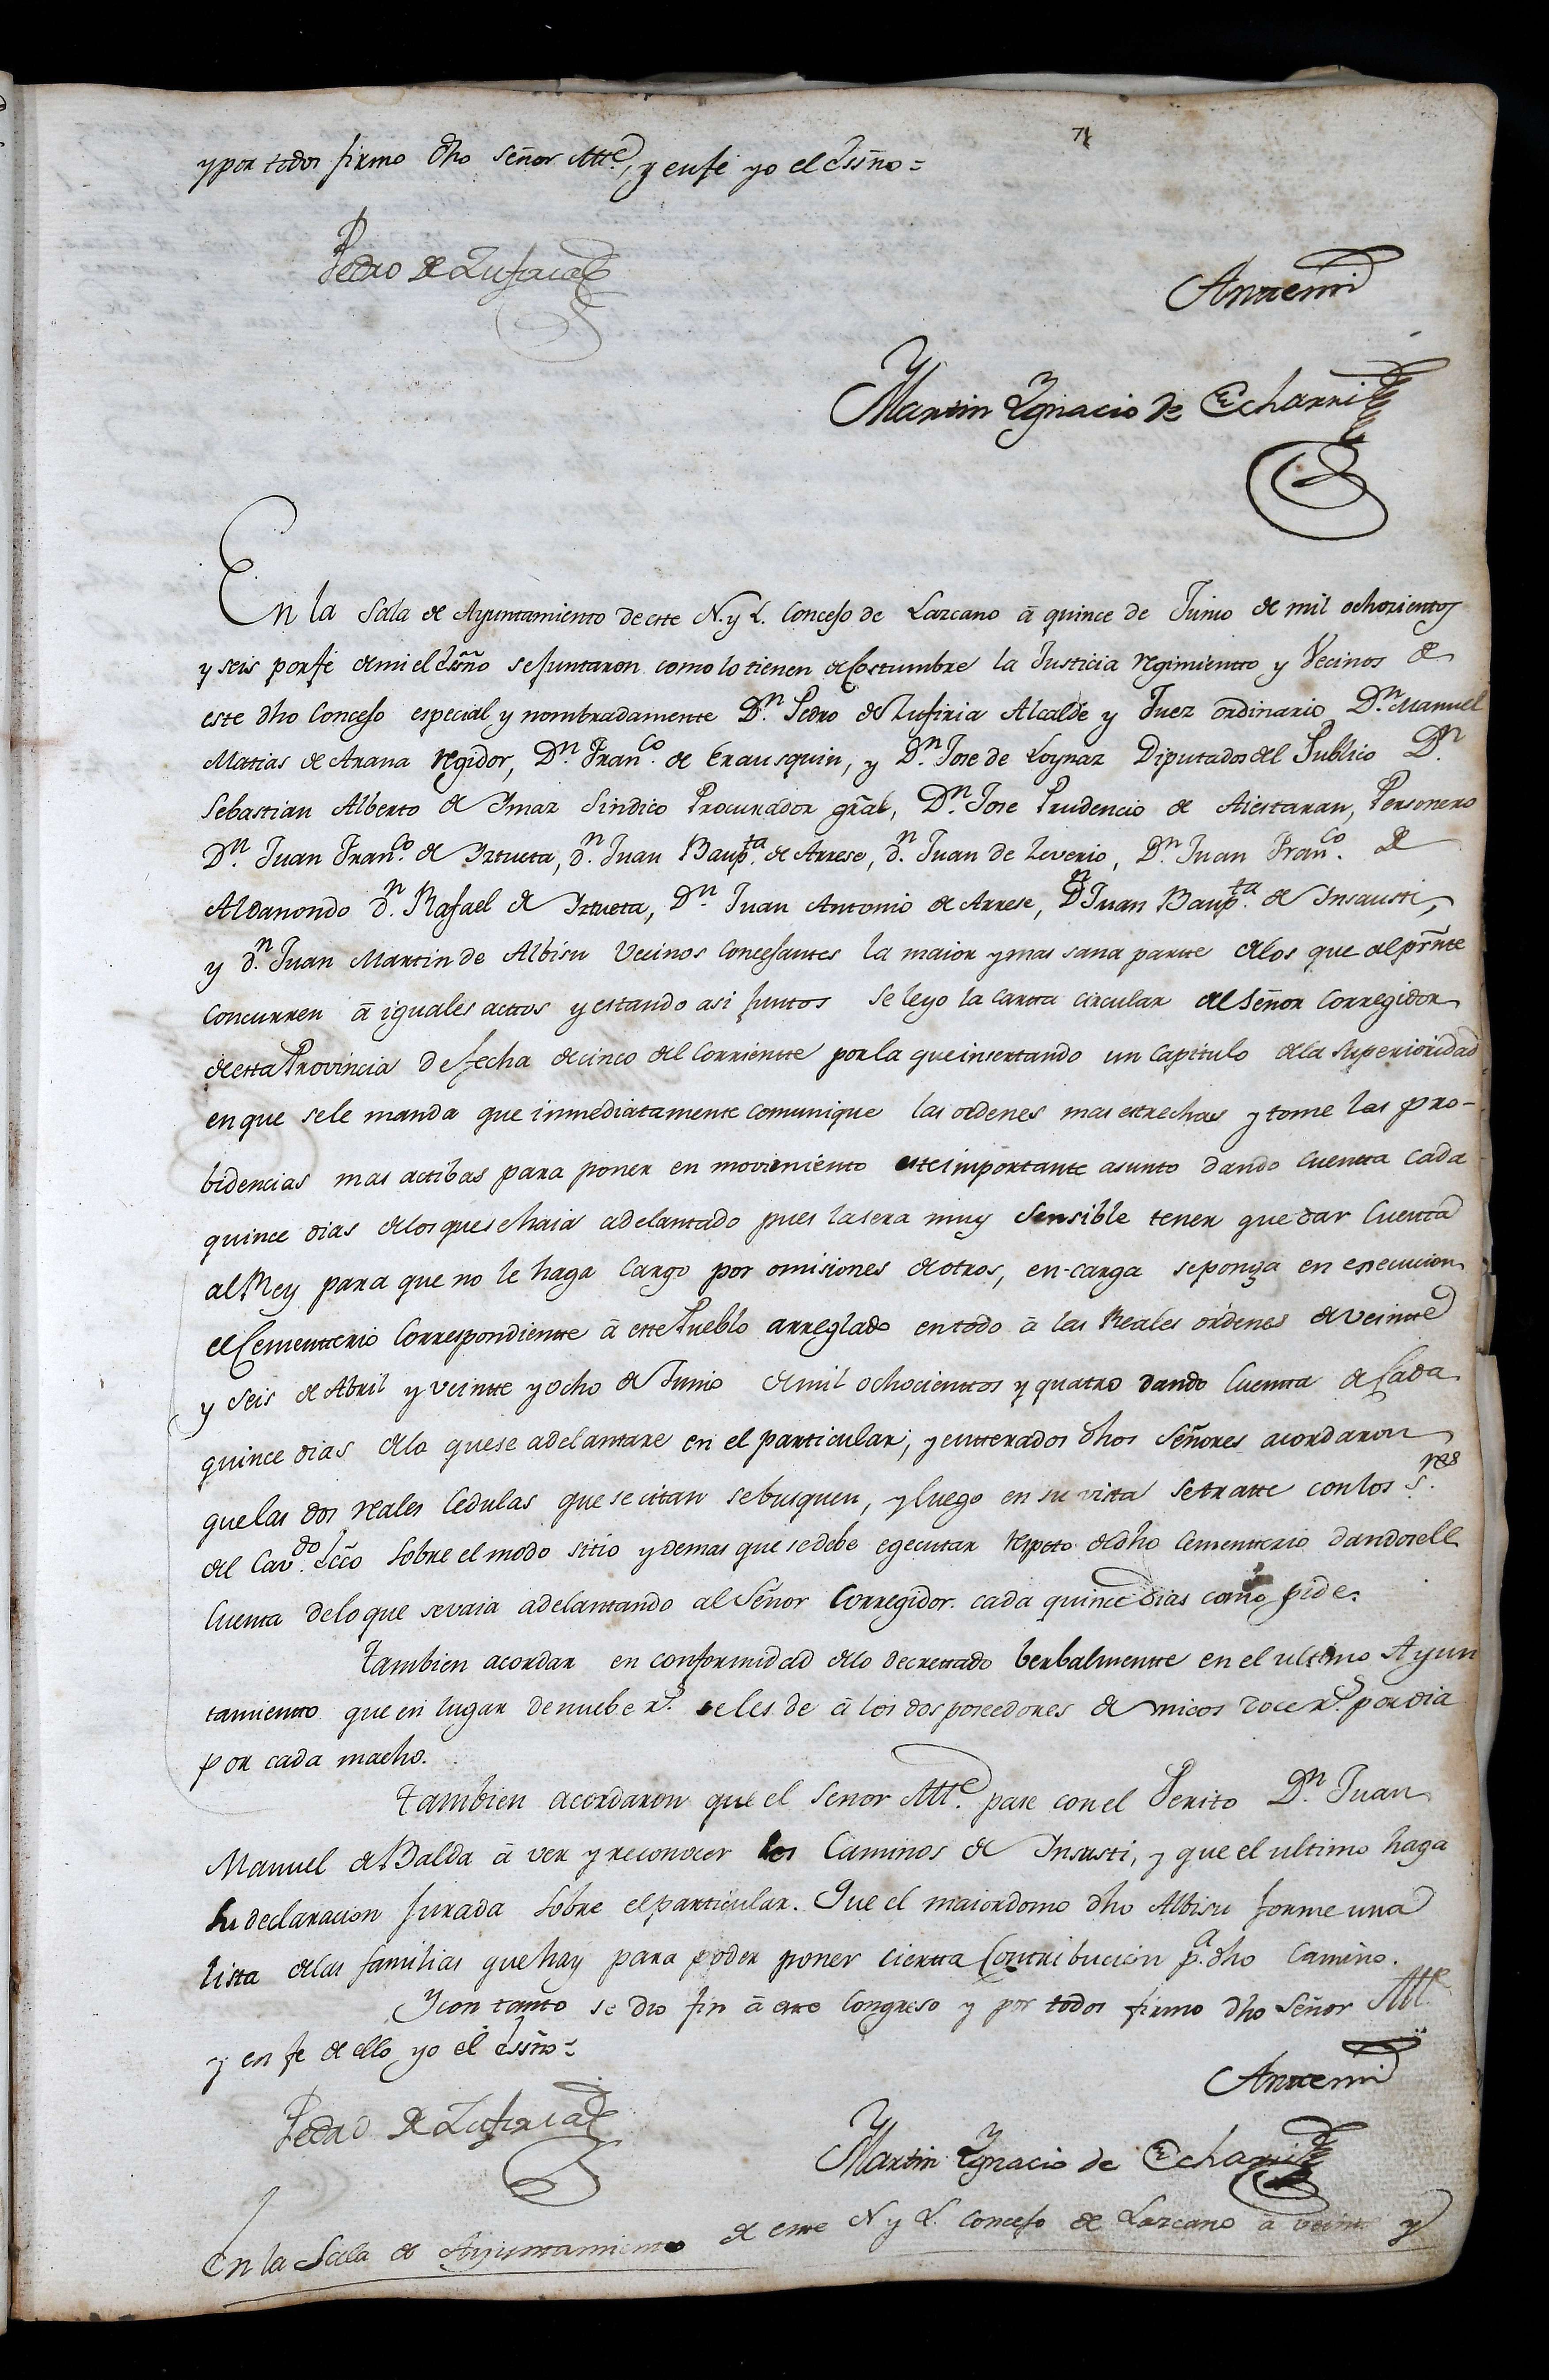 71
y por todos firmo dho Señor Alle, y en fe yo el Essño =
Pedro de Zufiria
Antemi
Martin Ygnacio de Echarri
En la Sala de Ayuntamiento de este N. y L. Concejo de Lazcano â quince de Junio de mil ochozientos
y seis por fe de mi el Essño se juntaron como lo tienen de Costumbre la Justicia regimientto y Vecinos de
este dho Concejo especial y nombradamente Dn. Pedro de Zufiria Alcalde y Juez ordinario Dn. Manuel
Matias de Arana regidor, Dn. Franco. de Erausquin, y Dn. Jose de Loynaz Diputados del Publico Dn.
Sebastian Alberto de Ymaz Sindico Procurador gral, Dn. Jose Prudencio de Aiestaran, Personero
Dn. Juan Franco. de Yztueta, dn. Juan Baupta. de Arrese, dn. Juan de Zeverio, Dn. Juan Franco. de
Aldanondo dn. Rafael de Yztueta, Dn. Juan Antonio de Arrese, Dn Juan Baupta. de Ynsausti,
y dn. Juan Martin de Albisu Vecinos Concejantes la maior y mas sana partte de los que al prnte
concurren â iguales acttos y estando asi juntos se leyo la cartta circular del Señor Corregidor
de esta Provincia de fecha de cinco del Corrientte por la que insertando un Capitulo de la Superioridad
en que se le manda que inmediatamente comunique las ordenes mas estrechas y tome las pro-
bidencias mas actibas para poner en movimiento este importante asunto dando cuentta cada
quince dias de los que se haia adelantado pues la sera muy Sensible tener que dar Cuenta
al Rey para que no le haga Cargo por omisiones de otros, en-carga se ponga en execucion
el Cementterio Correspondientte â este Pueblo arreglado en todo â las Reales ordenes de veintte
y Seis de Abril y veintte y ocho de Junio de mil ochocienttos y quatro dando Cuentta de Cada
quince dias de lo que se adelantare en el particular; y entterados dhos Señores acordaron
que las dos reales Cedulas que se citan se busquen, y luego en su vista se tratte con los Sres.
del Cavdo. Ecco sobre el modo sitio y demas que se debe egecutar respto de dho Cementterio dandosele
Cuenta de lo que se vaia adelantando al Señor Corregidor cada quince dias como pide.
Tambien acordar en conformidad de lo decrettado berbalmentte en el ultimo Ayun
tamientto que en lugar de nuebe rs. se les de â los dos poseedores de micos doce rs. por dia
por cada macho.
Tambien acordaron que el Señor Alle. pase con el Perito Dn. Juan
Manuel de Balda â ver y reconocer los Caminos de Ynsusti, y que el ultimo haga
su declaracion jurada sobre el particular. Que el maiordomo dho Albisu forme una
lista de las familias que hay para poder poner ciertta Contribucion pa. dho Camino.
Y con tanto se dio fin â este Congreso y por todos firmo dho Señor Alle.
y en fe de ello yo el Essño =
Antemi
Pedro de Zufiria
Martin Ygnacio de Echarri
En la Sala de Ayuntamiento de este N y L. Concejo de Lazcano â veinte y